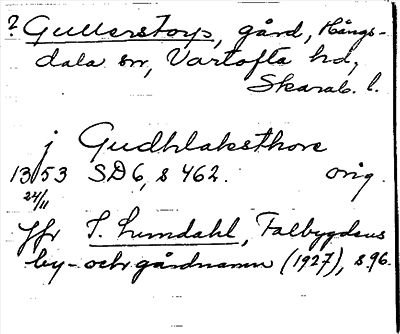 ? Gullerstorp, gård, Hångs-
dala sn, Vartofta hd,
Skarab. l.
j Gudhlaksthorp
1353 SD 6, s 462. orig.
24/11
Jfr I. Lundahl, Falbygdens
by- och gårdnamn (1927), s. 96.